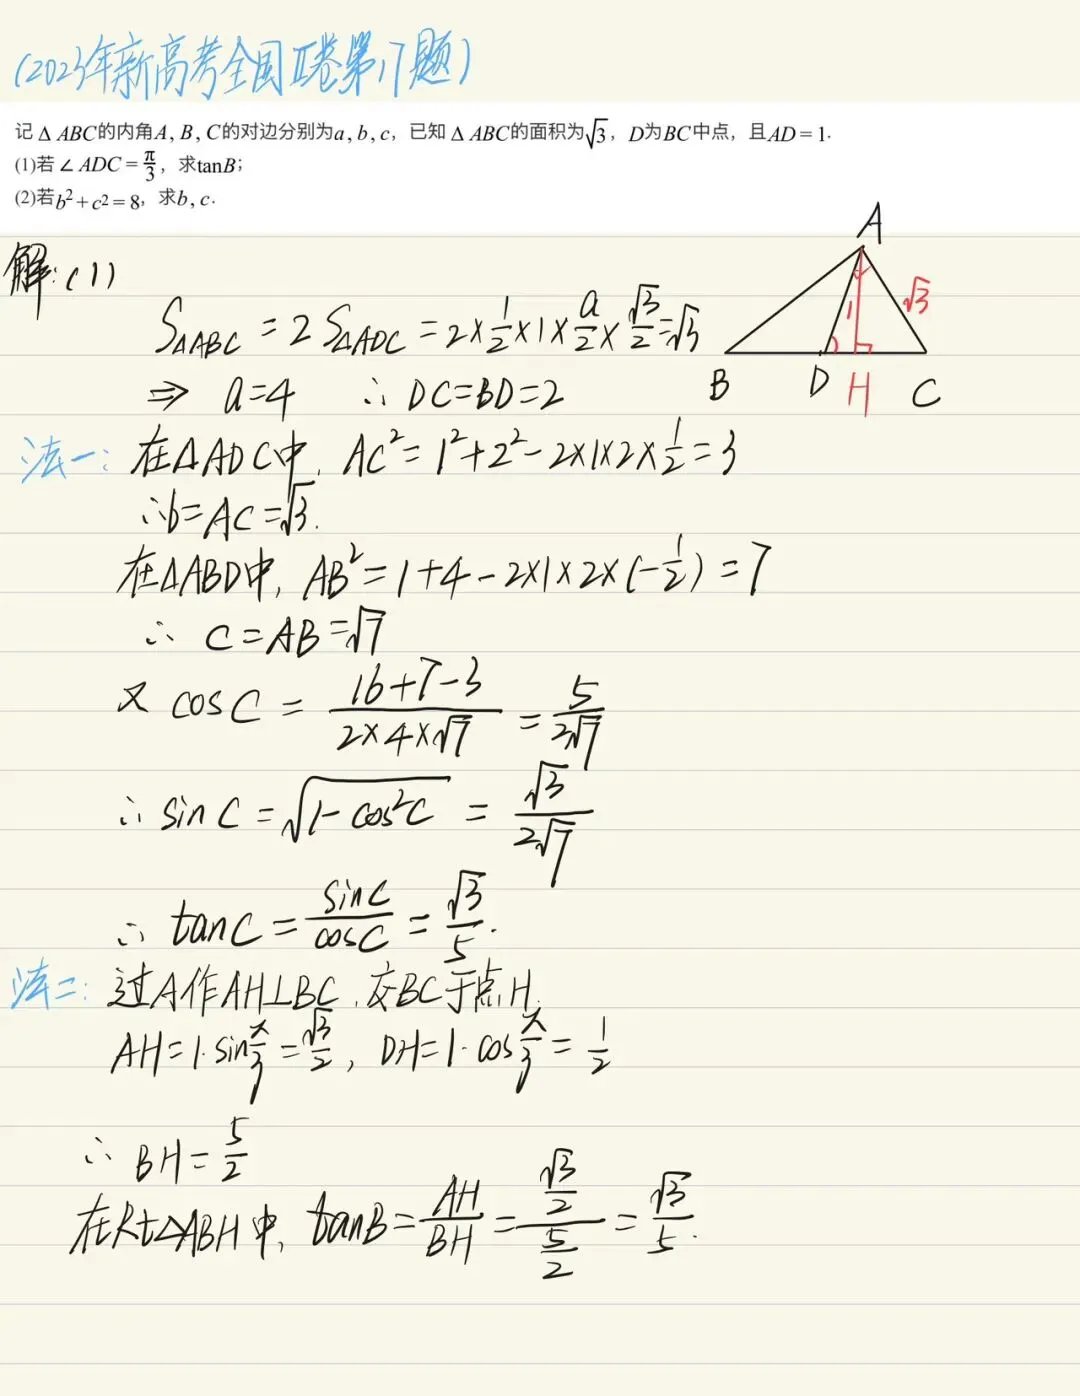 (2023年新高考全国Ⅱ卷第17题)
记△ABC的内角A, B, C的对边分别为a, b, c, 已知△ABC的面积为√3, D为BC中点, 且AD=1.
(1)若∠ADC=π/3, 求tanB;
(2)若b²+c²=8, 求b, c.
A
1
√3
B D H C
解:(1)
S△ABC = 2S△ADC = 2×1/2×1×a/2×√3/2=√3
⇒ a=4 ∴ DC=BD=2
法一: 在△ADC中, AC²=1²+2²-2×1×2×1/2=3
∴b=AC=√3.
在△ABD中, AB²=1+4-2×1×2×(-1/2)=7
∴ C=AB=√7
又 cosC = (16+7-3)/(2×4×√7) = 5/(2√7)
∴ sinC = √(1-cos²C) = √3/(2√7)
∴ tanC = sinC/cosC = √3/5.
法二: 过A作AH⊥BC, 交BC于点H.
AH=1·sinπ/3=√3/2, DH=1·cosπ/3=1/2
∴ BH=5/2
在Rt△ABH中, tanB=AH/BH=(√3/2)/(5/2)=√3/5.